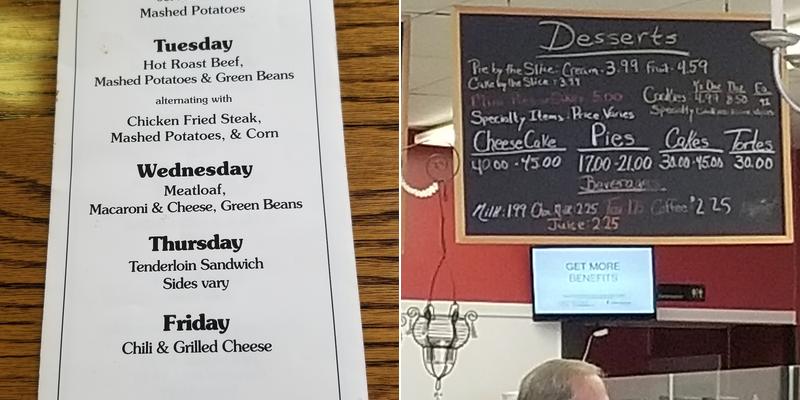 Mashed Potatoes
Tuesday
Hot Roast Beef,
Mashed Potatoes & Green Beans
alternating with
Chicken Fried Steak,
Mashed Potatoes, & Corn
Wednesday
Meatloaf,
Macaroni & Cheese, Green Beans
Thursday
Tenderloin Sandwich
Sides vary
Friday
Chili & Grilled Cheese
Desserts
Pie by the Slice: Cream - 3.99 Fruit - 4.59
Cake by the Slice: 3.99
5.00
Cookies: 4.99 8.50
Specialty Items: Price Varies
Specialty
CheeseCake Pies Cakes Tortes
40.00 - 45.00 17.00 - 21.00 30.00 - 45.00 30.00
Beverages
Milk: 1.99 Choc. Milk: 2.25 Coffee $2.25
Juice: 2.25
GET MORE
BENEFITS